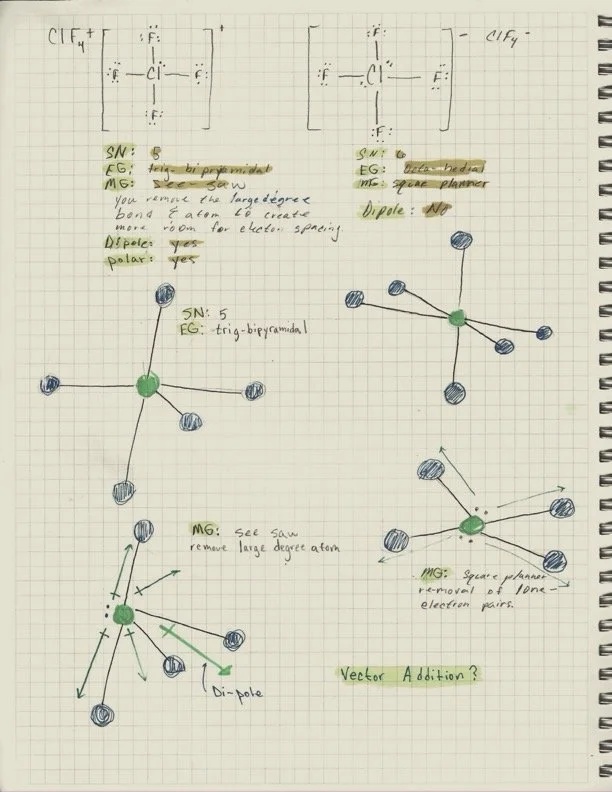 ClF₄⁺ [ :F: ]⁺
:F — Cl — F:
:F:
[ :F: ]⁻ ClF₄⁻
:F — Cl — F:
:F:
SN: 5
EG: trig-bipryamidal
MG: see-saw
you remove the large degree
bond & atom to create
more room for electon spacing.
Dipole: yes
polar: yes
SN: 6
EG: octa-hedial
MG: squae planner
Dipole: No
SN: 5
EG: trig-bipyramidal
MG: see saw
remove large degree atom
Di-pole
MG: Square planner
removal of lone-
electron pairs.
Vector Addition?